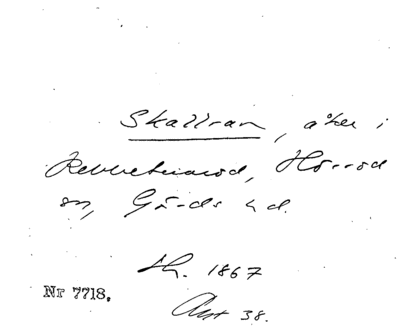 Skallran, åker i
Rebbetuaröd, Hörröd
sn, Gärds hd.
sk. 1867
Nr 7718.
Akt 38.